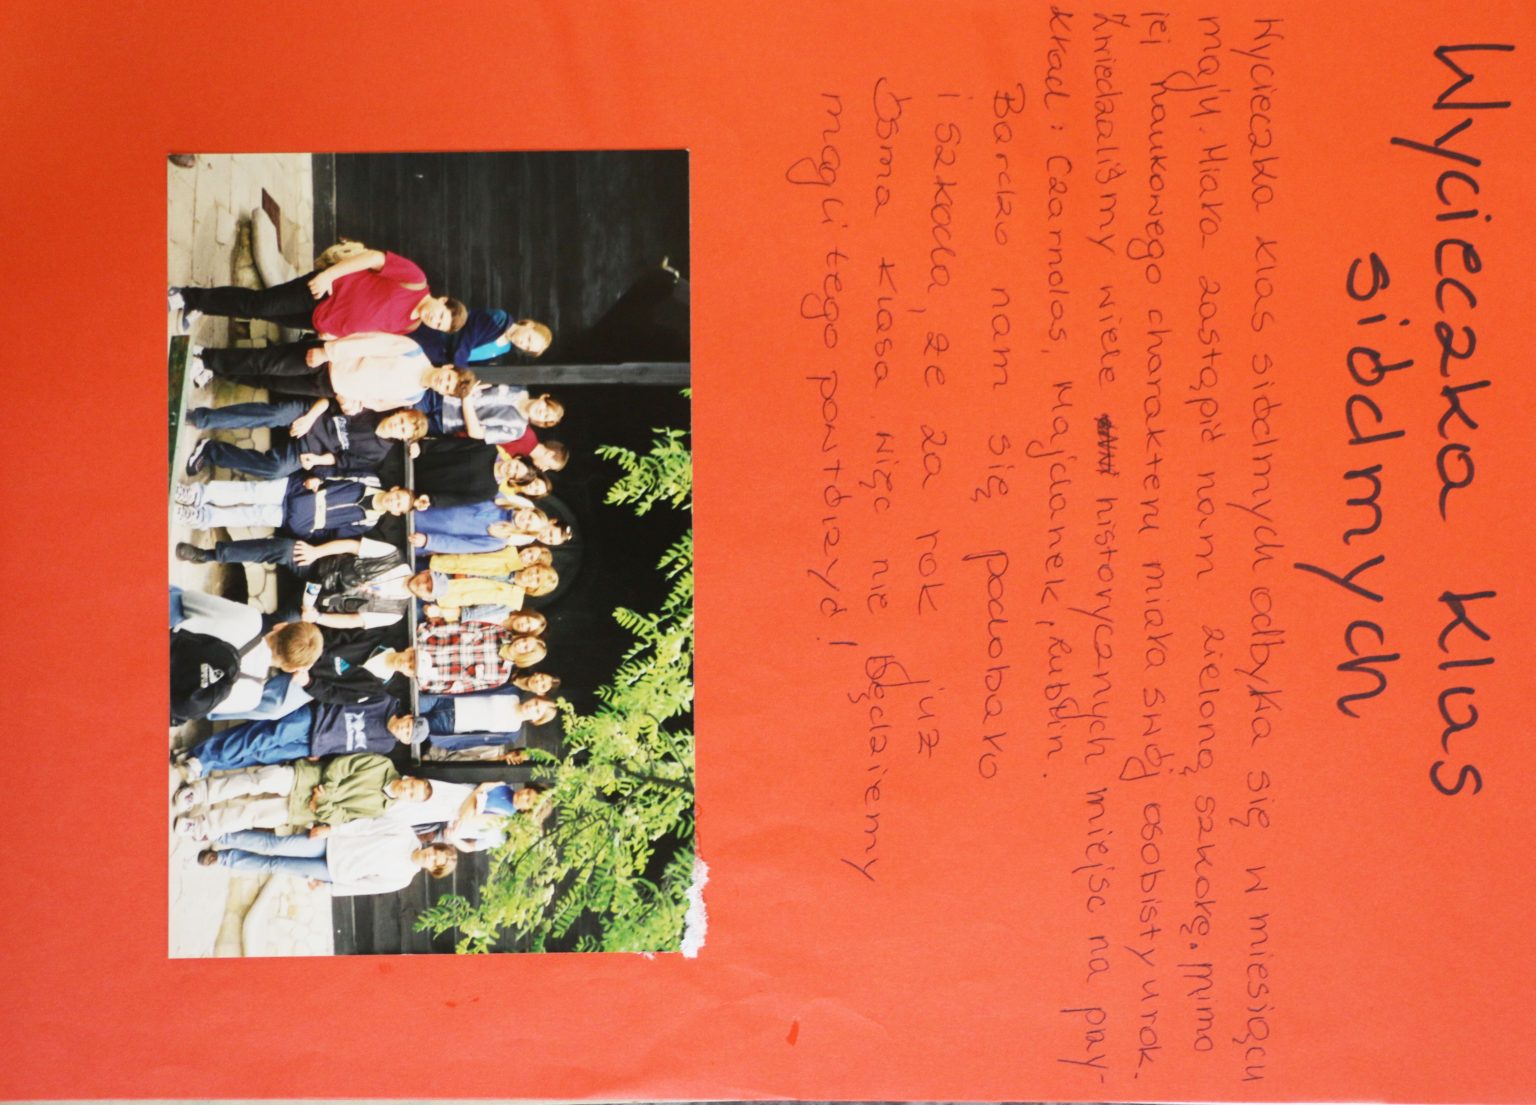 Wycieczka klas
siódmych
Wycieczka klas siódmych odbyła się w miesiącu
maju. Miała zastąpić nam zieloną szkołę. Mimo
jej naukowego charakteru miała swój osobisty urok.
Zwiedzaliśmy wiele historycznych miejsc na przy-
kład: Czarnolas, Majdanek, Lublin.
Bardzo nam się podobało
i szkoda, że za rok już
ósma klasa więc nie będziemy
mogli tego powtórzyć!